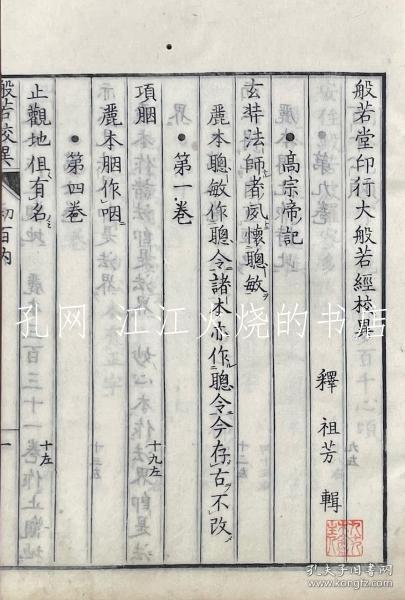 般若堂印行大般若經校異
釋祖芳輯
●高宗帝記
玄弉法師者夙懷聰敏ヲ
麗本聰敏作聰令諸本亦作聰令今存右不改
●第一卷
項胭 十九左
麗本胭作咽
●第四卷
止觀地但有名 十左
般若校異 初百内 一
孔网 江江火烧的书店
孔夫子旧书网
www.kongfz.com